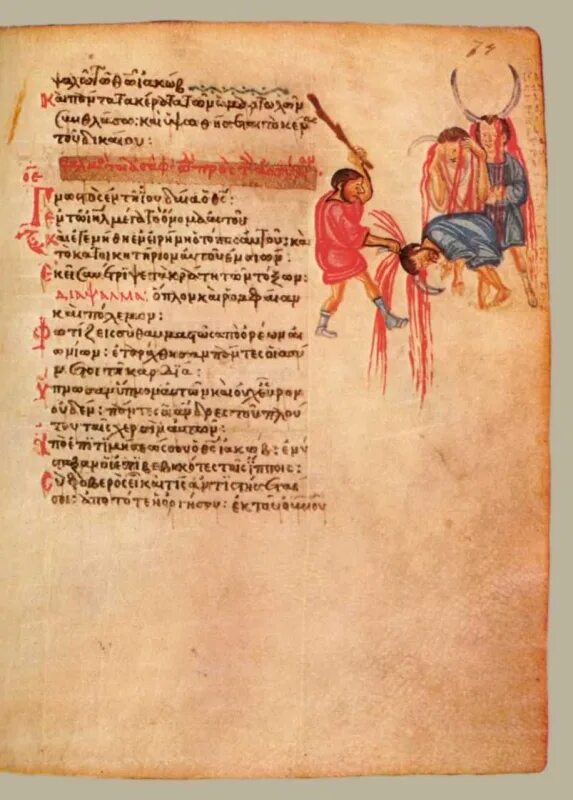 ψαλῶ τῶ θῶ ἰακώβ
Καὶ πάντα τὰ κέρατα τῶν ἁμαρτωλῶν
συνθλάσω: καὶ ὑψωθήσεται τὸ κέρας
τοῦ δικαίου:
οε
Γνωστὸς ἐν τῆ ἰουδαία ὁ θς:
Ἐν τῶ ἰηλ μέγα τὸ ὄνομα αὐτοῦ
Καὶ ἐγενήθη ἐν εἰρήνη ὁ τόπος αὐτοῦ: καὶ
τὸ κατοικητήριον αὐτοῦ ἐν σιών:
Ἐκεῖ συνέτριψε τὰ κράτη τῶν τόξων:
ΔΙΑΨΑΛΜΑ ὅπλον καὶ ῥομφαίαν
καὶ πόλεμον:
Φωτίζεις σὺ θαυμαστῶς ἀπὸ ὀρέων αἰ
ωνίων: ἐταράχθησαν πάντες οἱ ἀσύ
νετοι τῆ καρδία:
Ὕπνωσαν ὕπνον αὐτῶν καὶ οὐχ εὗρον
οὐδέν: πάντες οἱ ἄνδρες τοῦ πλού
του ταῖς χερσὶν αὐτῶν:
Ἀπὸ ἐπιτιμήσεώς σου ὁ θς ἰακώβ: ἐνύ
σταξαν οἱ ἐπιβεβηκότες τοῖς ἵπποις:
Σὺ φοβερὸς εἶ καὶ τίς ἀντιστήσεταί
σοι: ἀπὸ τότε ἡ ὀργή σου: ἐκ τοῦ οὐνου